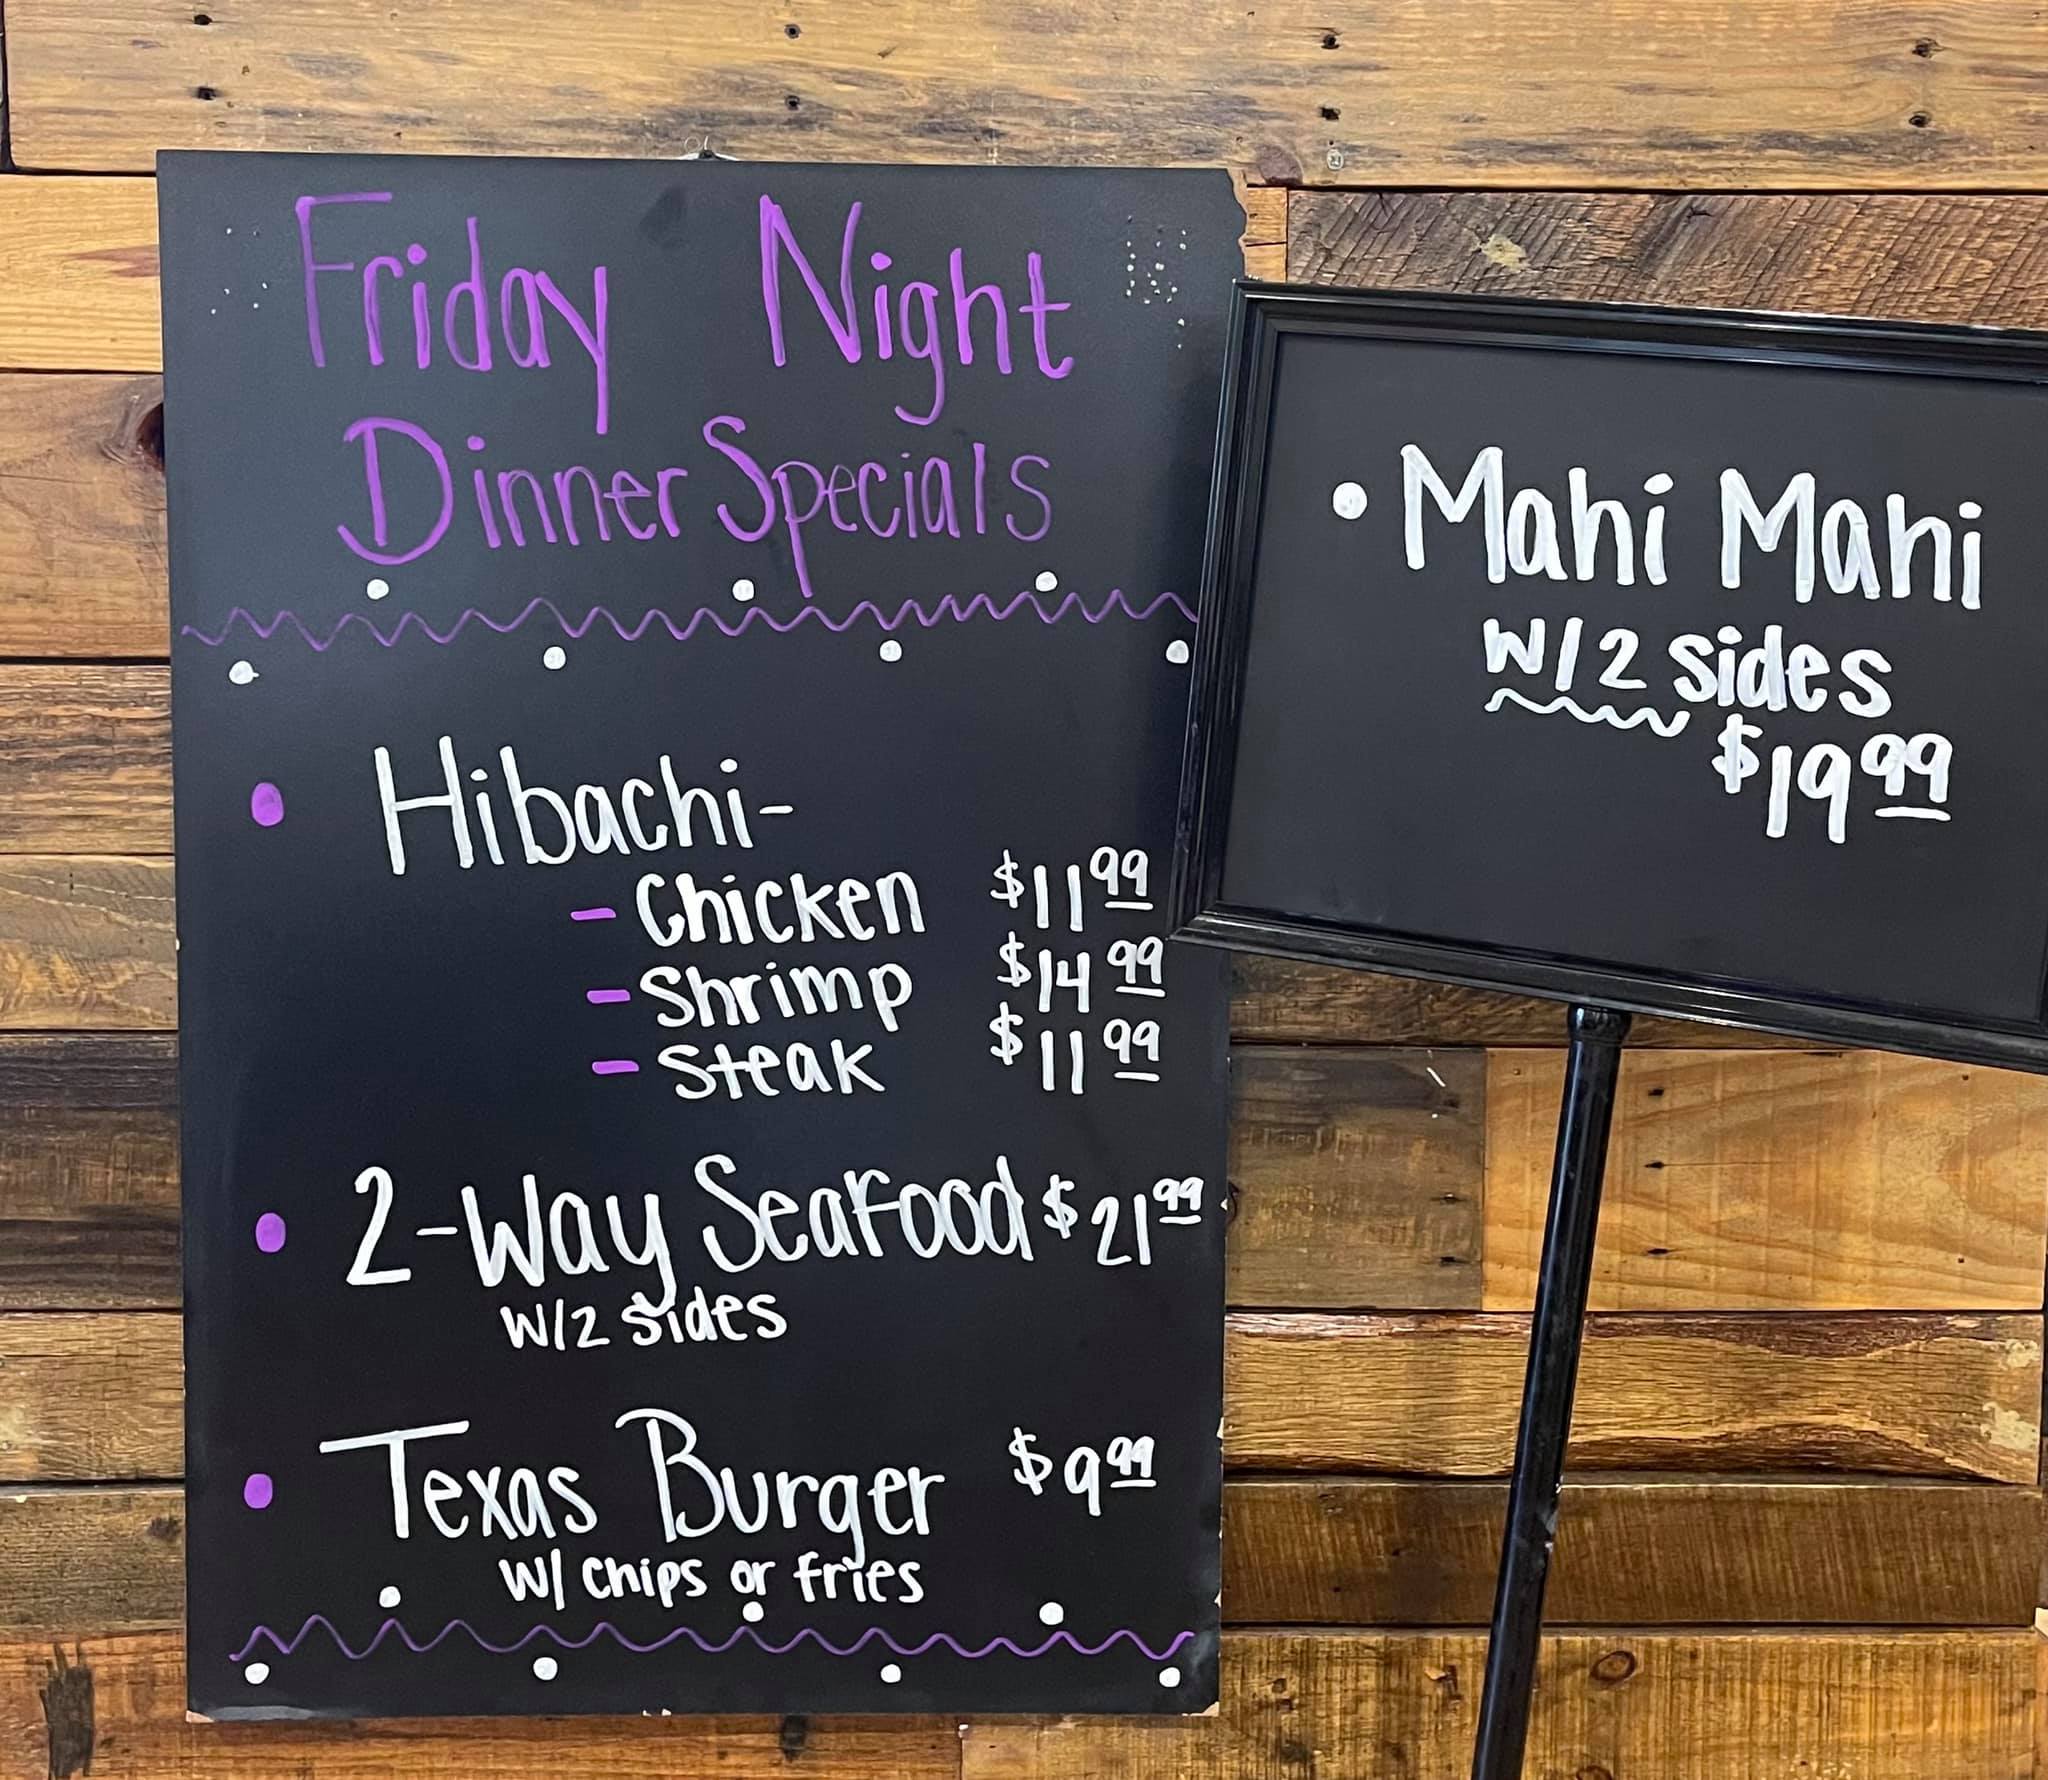 Friday Night
Dinner Specials
• Hibachi-
- Chicken $11.99
- Shrimp $14.99
- Steak $11.99
• 2-Way Seafood $21.99
W/2 sides
• Texas Burger $9.99
W/ chips or fries
• Mahi Mahi
W/2 sides
$19.99